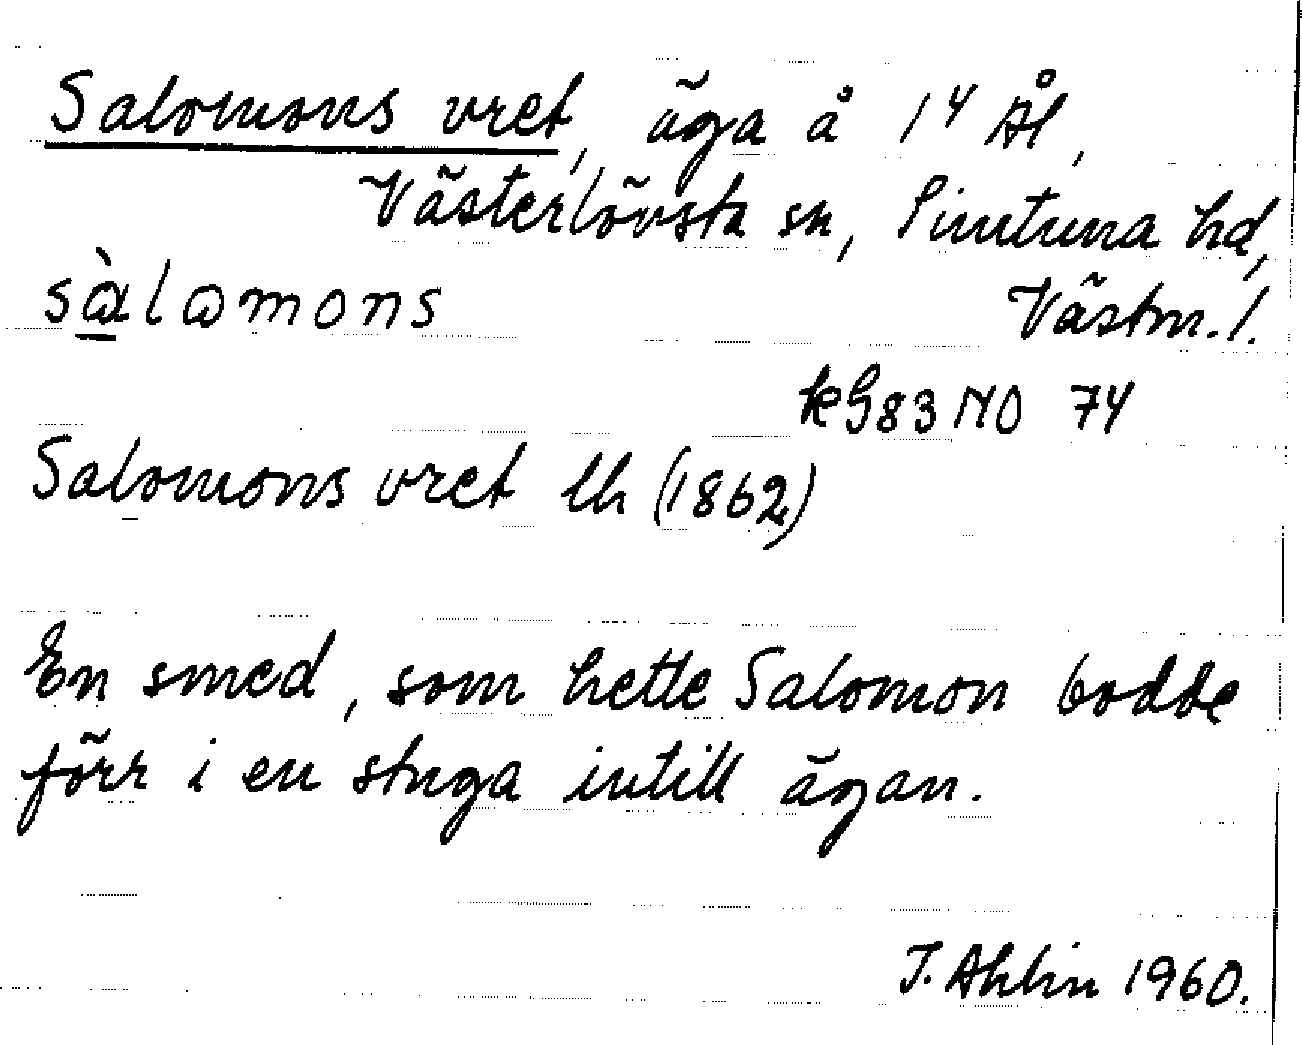 Salomons vret, äga å 14 Ål,
Västerlövsta sn, Simtuna hd,
sàlomons Västm. l.
kG83NO 74
Salomons vret lh (1862)
En smed, som hette Salomon bodde
förr i en stuga intill ägan.
J. Ahlin 1960.